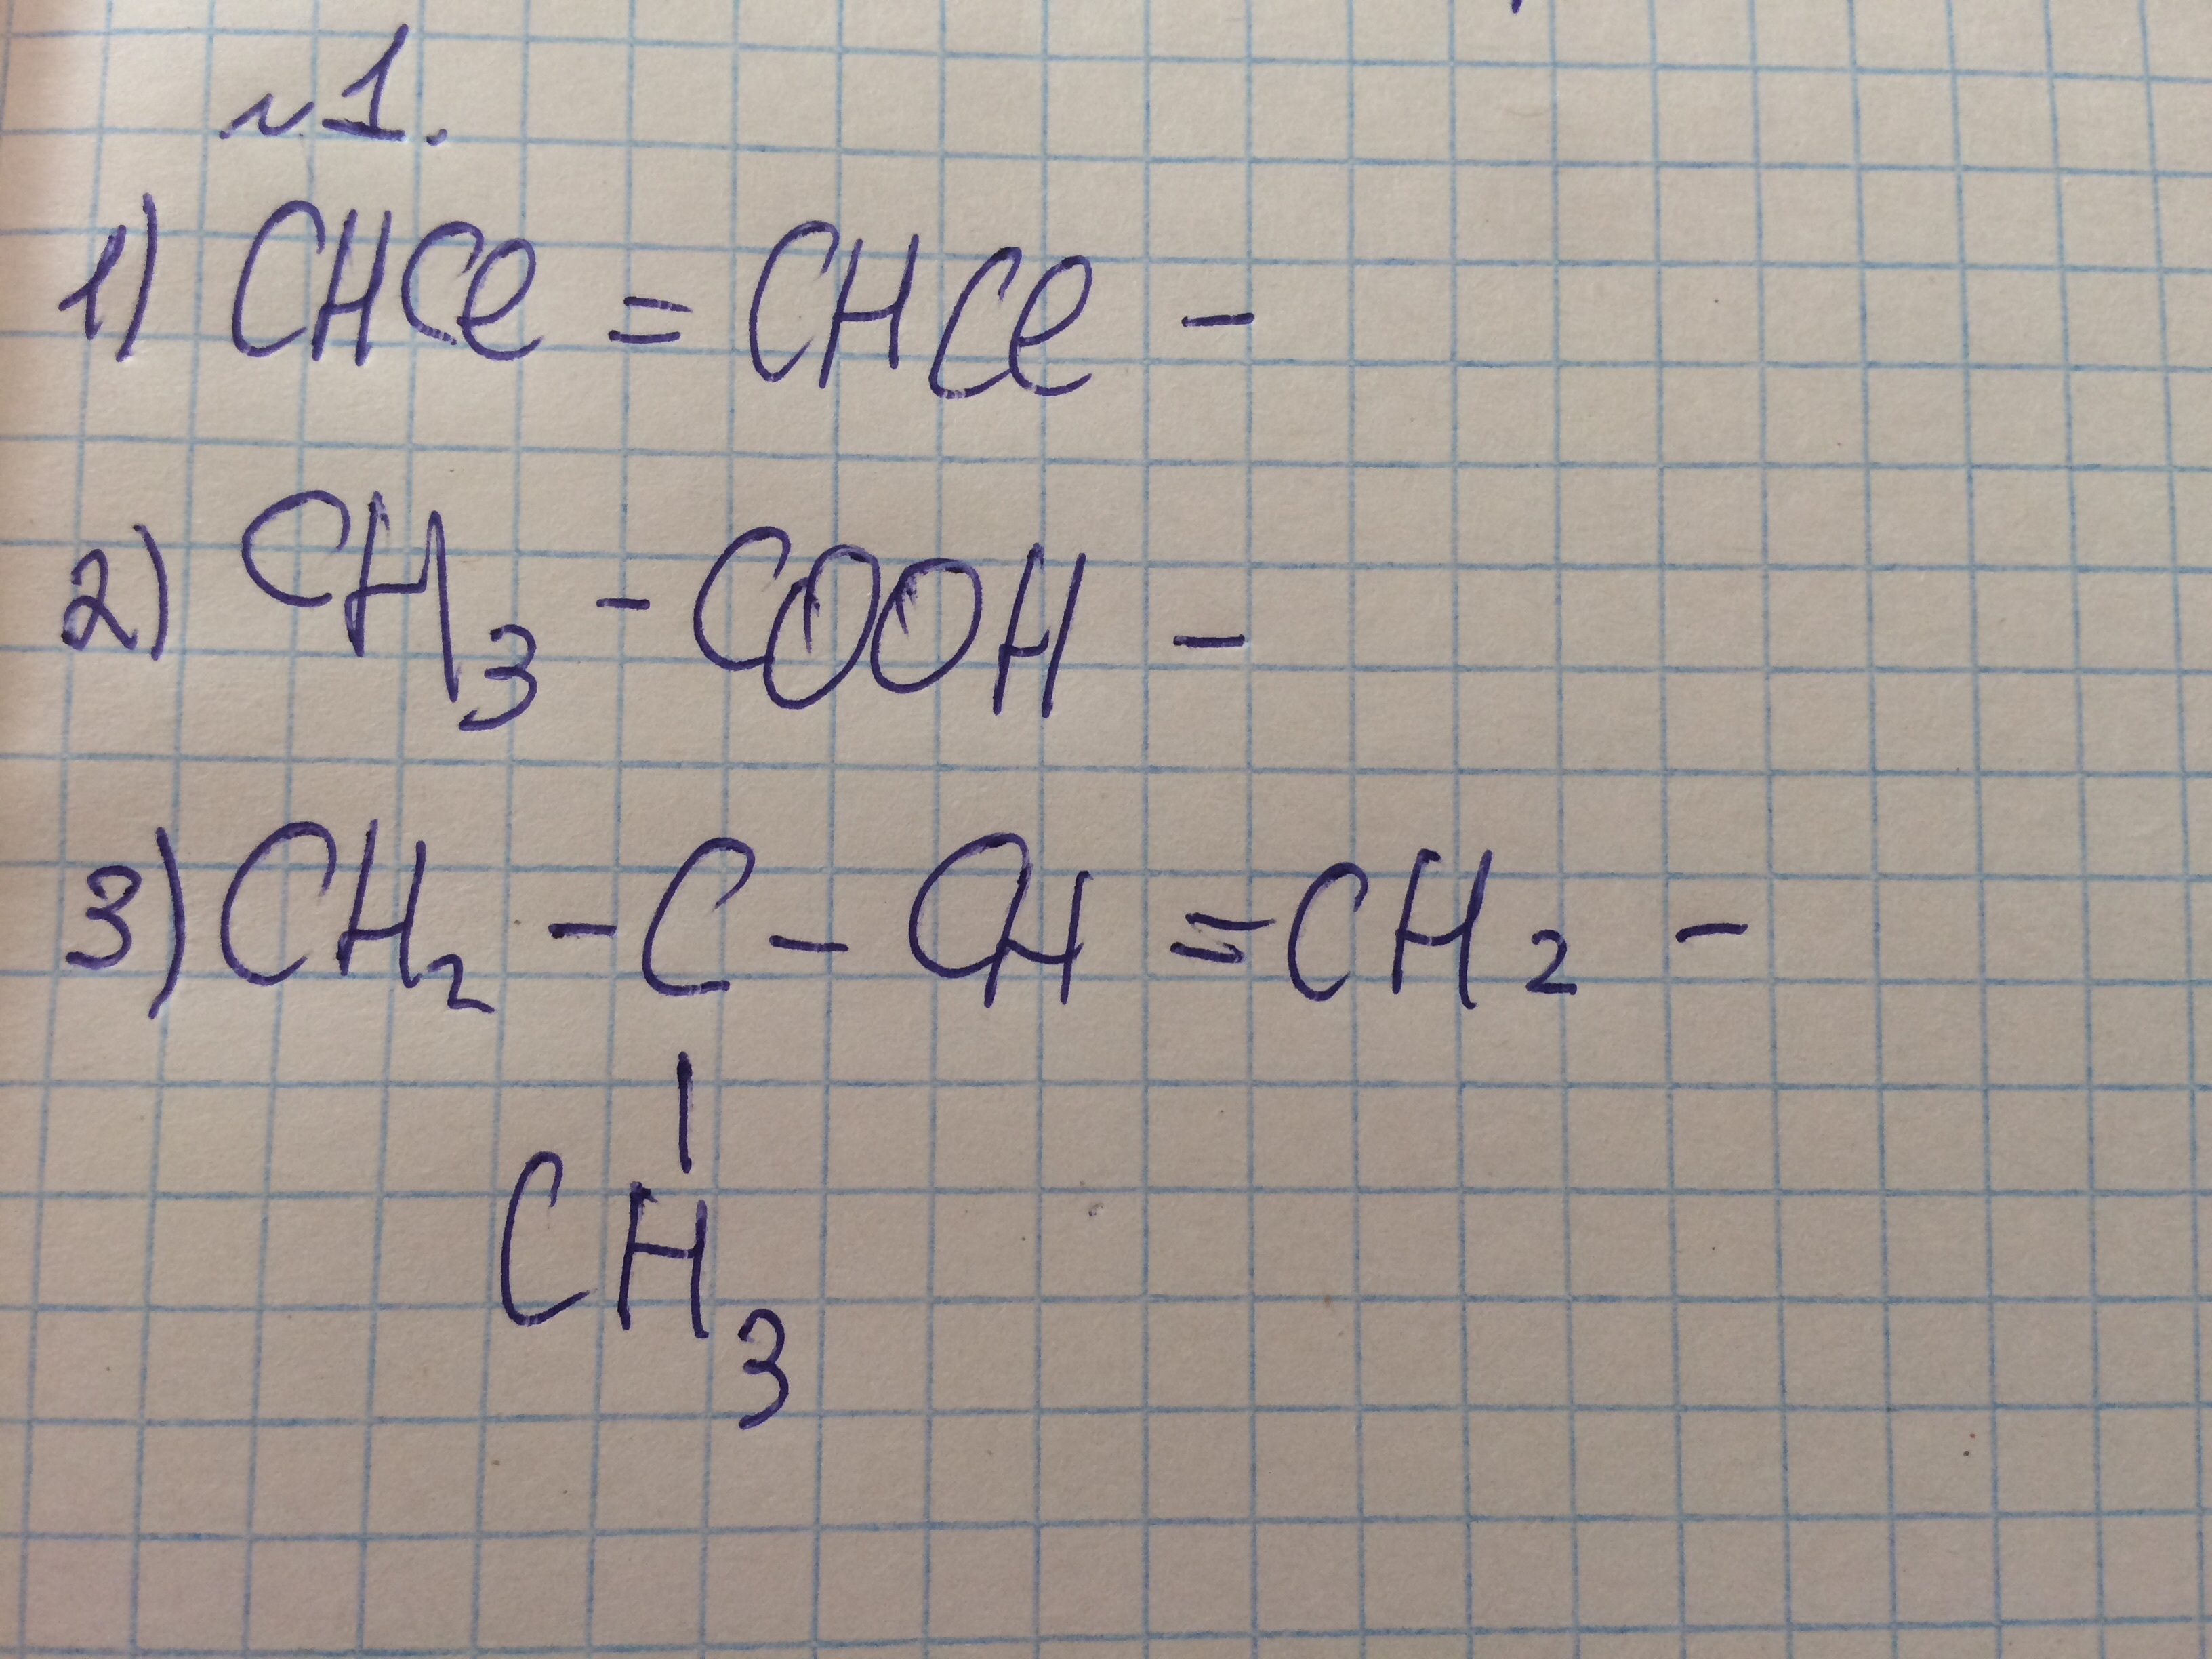 №1.
1) CHCl = CHCl -
2) CH3 - COOH -
3) CH2 - C - CH = CH2 -
|
CH3